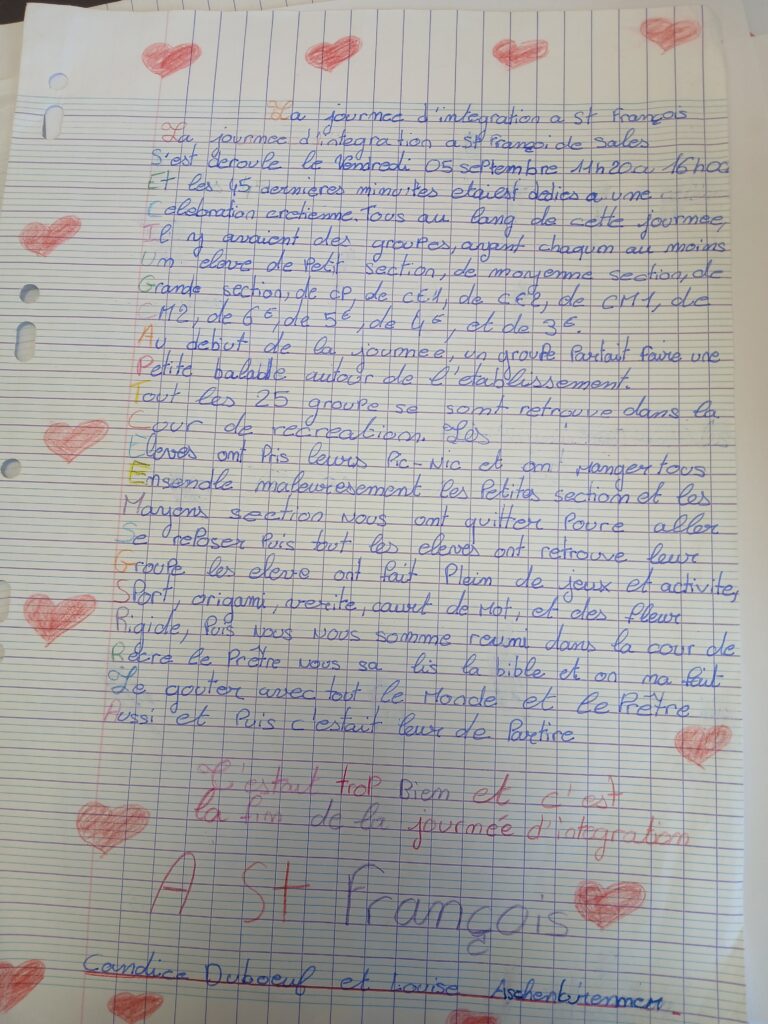 La journee d'integration a St François
La journee d'integration a St Françoi de Sales
S'est deroule le Vendredi 05 septembre 11h20 a 16h00
Et les 45 dernières minuites etaiest dedies a une
Celebration cretienne. Tous au lang de cette journee,
Il y avaient des groupes, ayant chaqum au moins
Un eleve de Petit section, de moyenne section, de
Grande section, de CP, de CE1, de CE2, de CM1, de
CM2, de 6e, de 5e, de 4e, et de 3e.
Au debut de la journee, un groupe Partait faire une
Petite balade autour de l'etablissement.
Tout les 25 groupe se somt retrouve dans la
Cour de recreation. Les
Eleves ont Pris leurs Pic-Nic et on Manger tous
Ensendle maleuresement les Petites section et les
Mayons section Nous ont quitter Poure aller
Se reposer Puis tout les eleves ont retrouve leur
Groupe les eleve ont fait Plein de jeux et activite,
Sport, origami, verite, court de Mot, et des fleur
Rigide, Puis Nous Nous somme reumi dans la cour de
Recre le Prêtre Nous sa lis la bible et on ma fait
Le gouter avec tout le Monde et le Prêtre
Aussi et Puis c'estait leur de Partire
C'estait trop Biem et c'est
la fim de la journée d'integration
A St François
Candice Duboeuf et Louise